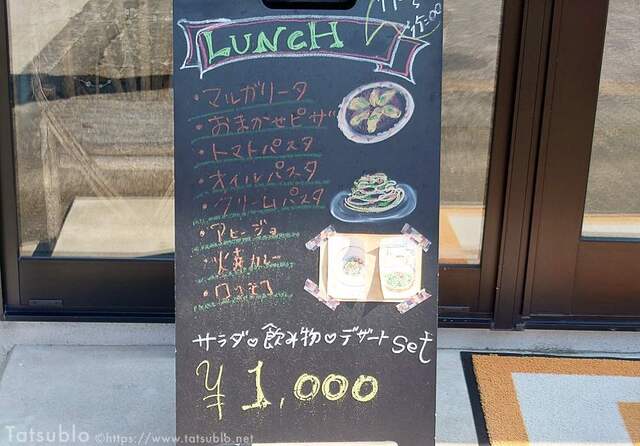 LUNCH
・マルガリータ
・おまかせピザ
・トマトパスタ
・オイルパスタ
・クリームパスタ
・アヒージョ
・焼カレー
・ロコモコ
サラダ♡飲み物♡デザート set
¥1,000
Tatsublo ©https://www.tatsublo.net